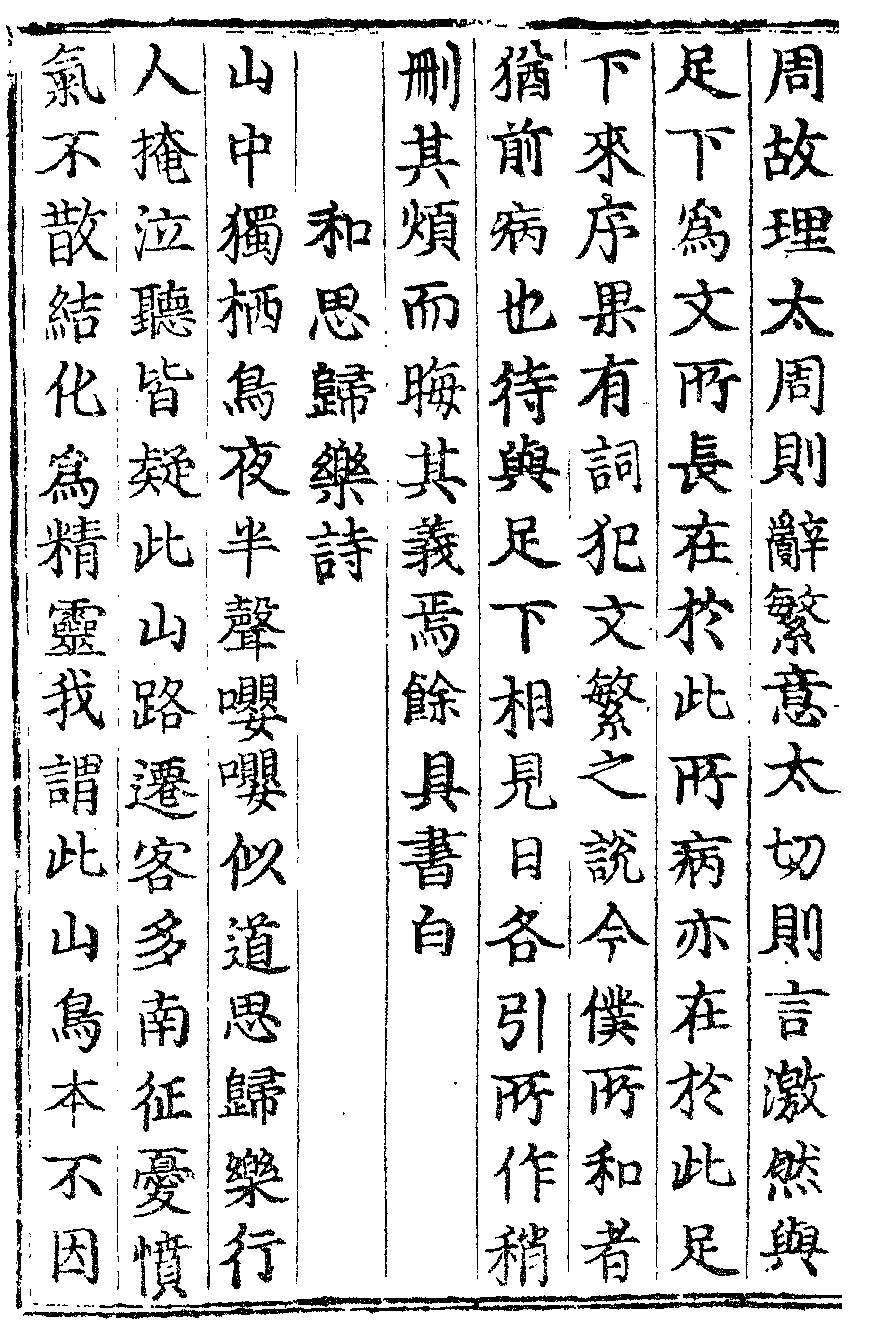 周故理太周則辭繁意太切則言激然與
足下爲文所長在於此所病亦在於此足
下來序果有詞犯文繁之說今僕所和者
猶前病也待與足下相見日各引所作稍
刪其煩而晦其義焉餘具書白
和思歸樂詩
山中獨栖鳥夜半聲嚶嚶似道思歸樂行
人掩泣聽皆疑此山路遷客多南征憂憤
氣不散結化爲精靈我謂此山鳥本不因